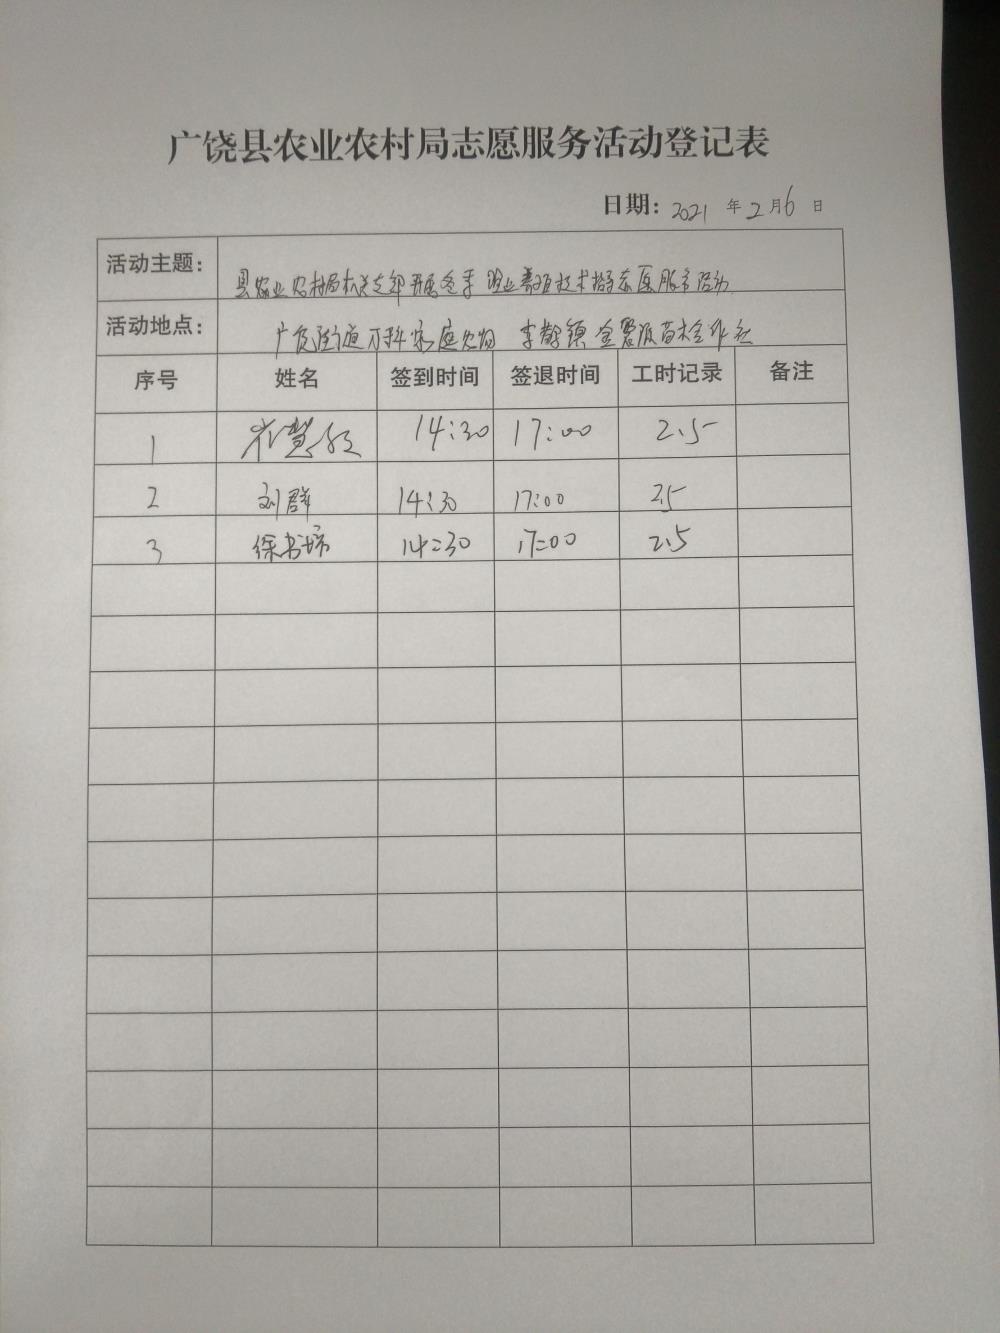 广饶县农业农村局志愿服务活动登记表
日期: 2021 年 2 月 6 日
活动主题: 县农业农村局机关支部开展冬季 技术指导志愿服务活动
活动地点: 广饶街道 万科家庭农场 李鹊镇 苗木合作社
序号 姓名 签到时间 签退时间 工时记录 备注
1 14:30 17:00 2.5
2 刘群 14:30 17:00 2.5
3 徐书 14:30 17:00 2.5